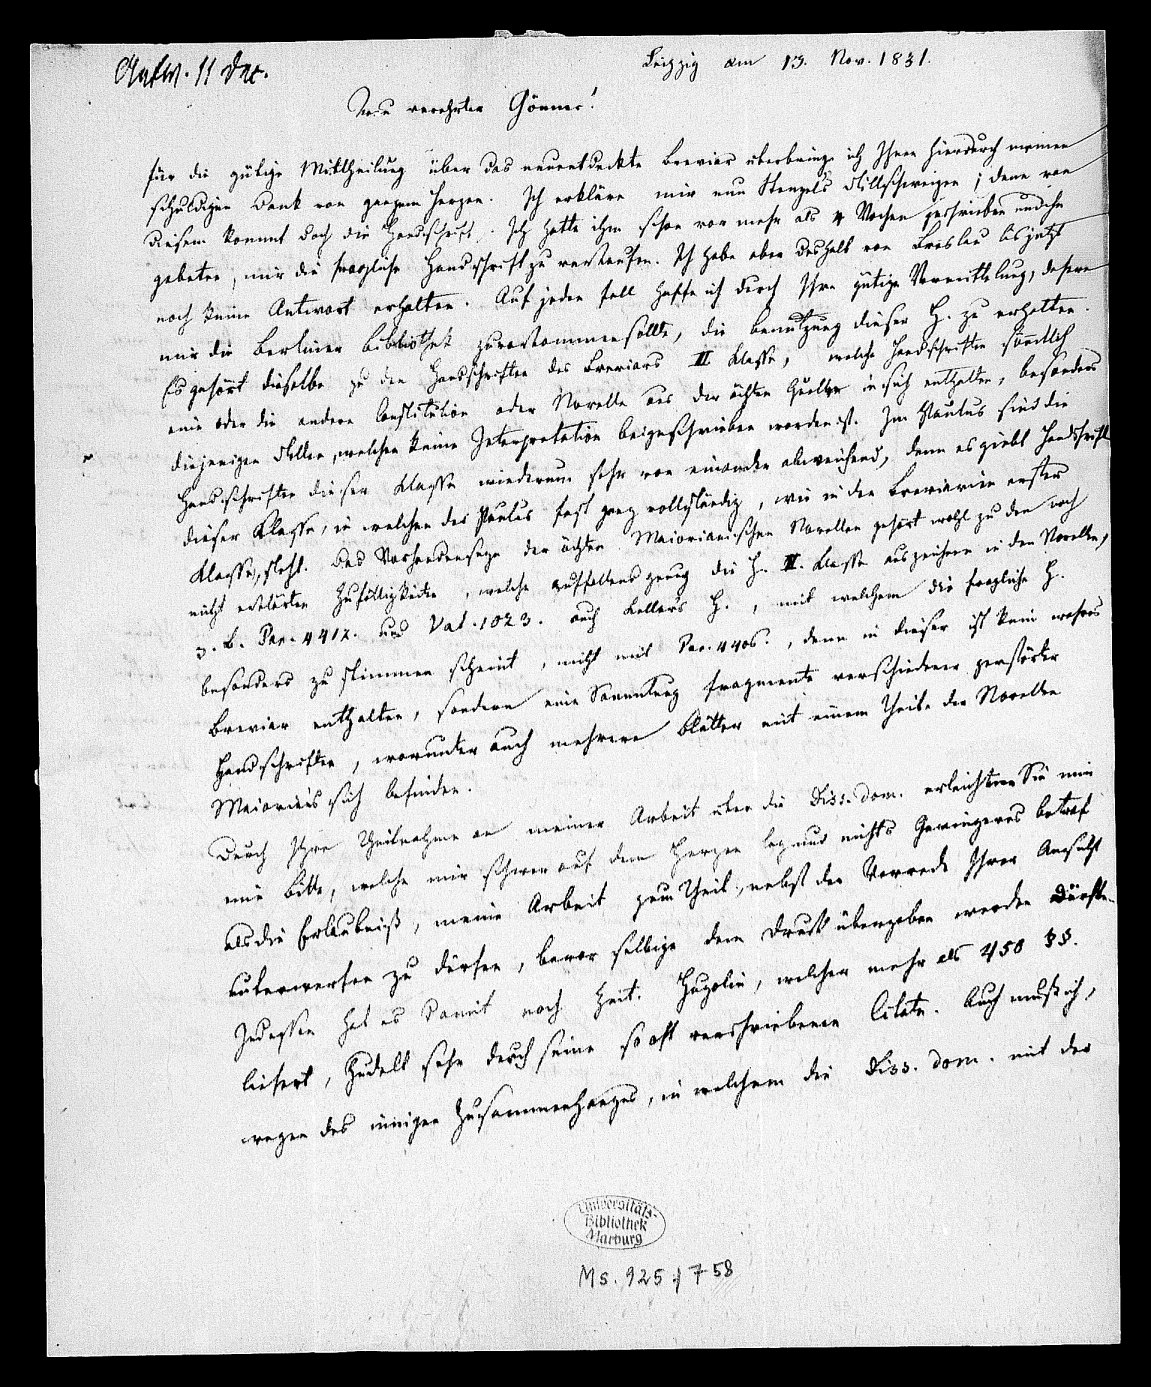 Antw. 11 Dec.
Leipzig am 13. Nov. 1831.
verehrter Gönner!
für die gütige Mittheilung über das neuentdeckte Breviar überbringe ich Ihnen hierdurch meinen
schuldigen Dank von ganzem Herzen. Ich erkläre mir nun Stenzel's Stillschweigen; denn von
diesem kommt doch die Handschrift. Ich hatte ihm schon vor mehr als 4 Wochen geschrieben und ihn
gebeten, mir die fragliche Handschrift zu verkaufen. Ich habe aber deshalb von Breslau bis jetzt
noch keine Antwort erhalten. Auf jeden Fall hoffe ich durch Ihre gütige Vermittelung, dafern
mir die Berliner Bibliothek zuvorkommen sollte, die Benutzung dieser H. zu erhalten.
Es gehört dieselbe zu den Handschriften des Breviars II Klasse, welche Handschriften sämtlich
eine oder die andere Constitution oder Novelle aus der ächten Quelle in sich enthalten, besonders
diejenigen Stellen, welchen keine Interpretation beigeschrieben worden ist. Im Paulus sind die
Handschriften dieser Klasse wiederum sehr von einander abweichend, denn es giebt Handschrift
dieser Klasse, in welchen der Paulus fast ganz vollständig, wie in den Breviarien erster
Klasse, steht. Das Vorhandenseyn der ächten Majorianischen Novellen gehört wohl zu den noch
nicht erklärten Zufälligkeiten, welche auffallend genug die H. II. Klasse auszeichnen in den Novellen,
z. B. Par. 4412. und Vat. 1023. auch Keller's H., mit welchem die fragliche H.
besonders zu stimmen scheint, nicht mit Par. 4406., denn in dieser ist kein wahres
Breviar enthalten, sondern eine Sammlung Fragmente verschiedener zerstörter
Handschriften, worunter auch mehrere Blätter mit einem Theile der Novellen
Maiorians sich befinden.
Durch Ihre Theilnahme an meiner Arbeit über die Diss. dom. erleichtern Sie mir
eine Bitte, welche mir schwer auf dem Herzen lag und nichts Geringeres betraf
als die Erlaubniß, meine Arbeit zum Theil, nebst der Vorrede Ihrer Ansicht
unterwerfen zu dürfen, bevor selbige dem Druck übergeben werden dürfte.
Indessen hat es damit noch Zeit. Hugolin, welcher mehr als 450 §§.
liefert, hudelt sehr durch seine so oft verschriebenen Citate. Auch muß ich,
wegen des innigen Zusammenhanges, in welchem die Diss. dom. mit der
Universitäts-
Bibliothek
Marburg
Ms. 925/758